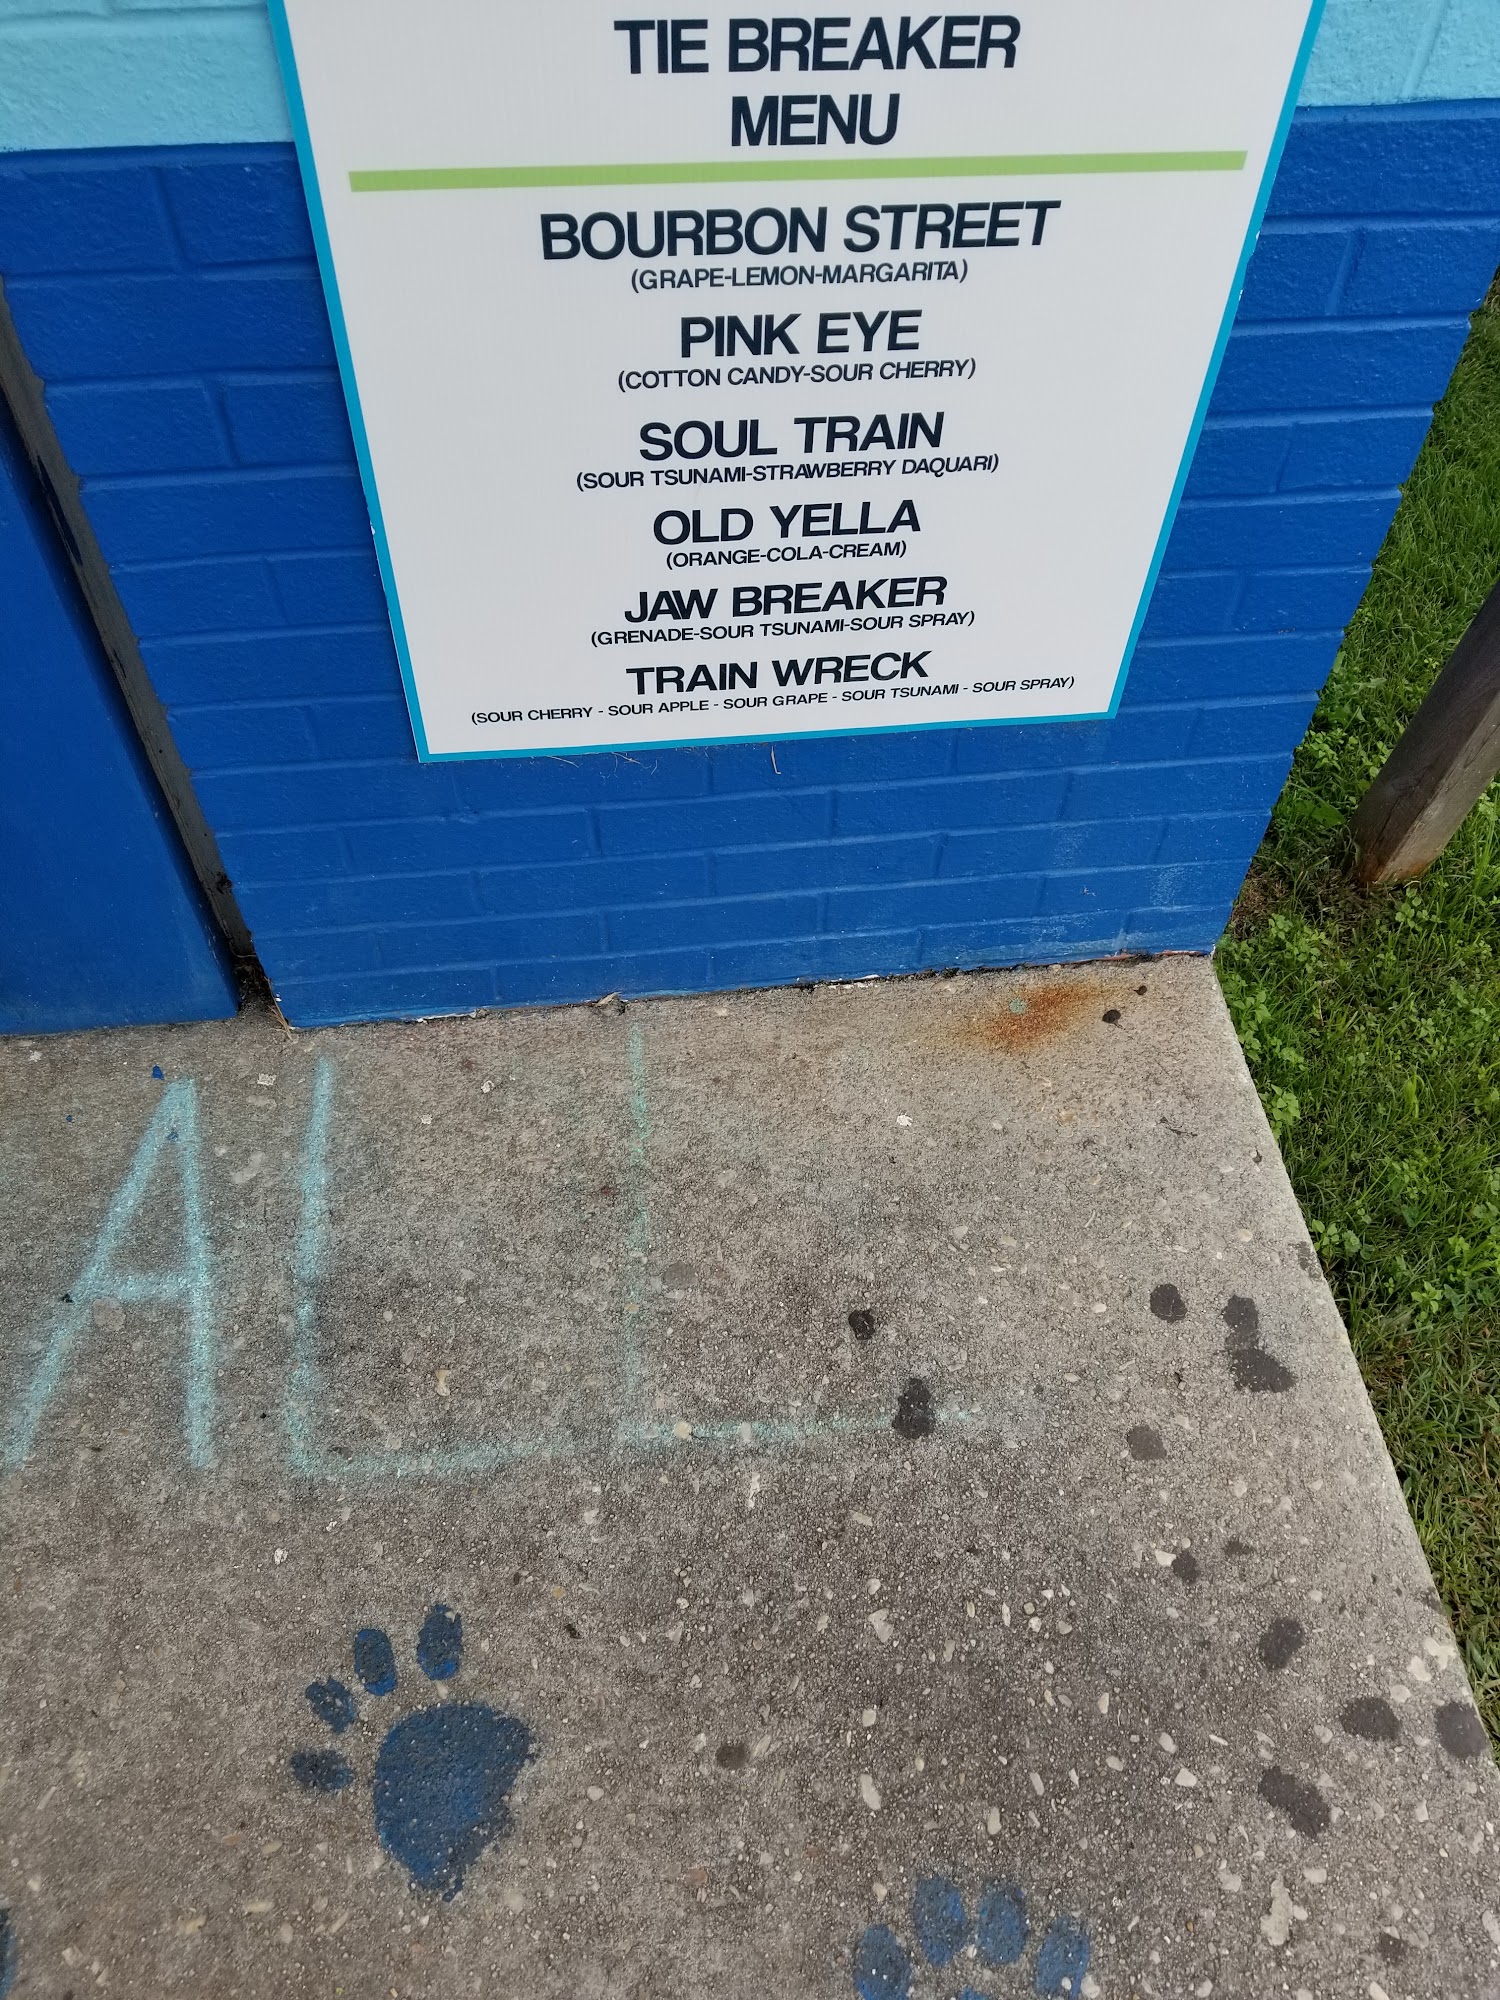 TIE BREAKER
MENU
BOURBON STREET
(GRAPE-LEMON-MARGARITA)
PINK EYE
(COTTON CANDY-SOUR CHERRY)
SOUL TRAIN
(SOUR TSUNAMI-STRAWBERRY DAQUARI)
OLD YELLA
(ORANGE-COLA-CREAM)
JAW BREAKER
(GRENADE-SOUR TSUNAMI-SOUR SPRAY)
TRAIN WRECK
(SOUR CHERRY - SOUR APPLE - SOUR GRAPE - SOUR TSUNAMI - SOUR SPRAY)
ALL